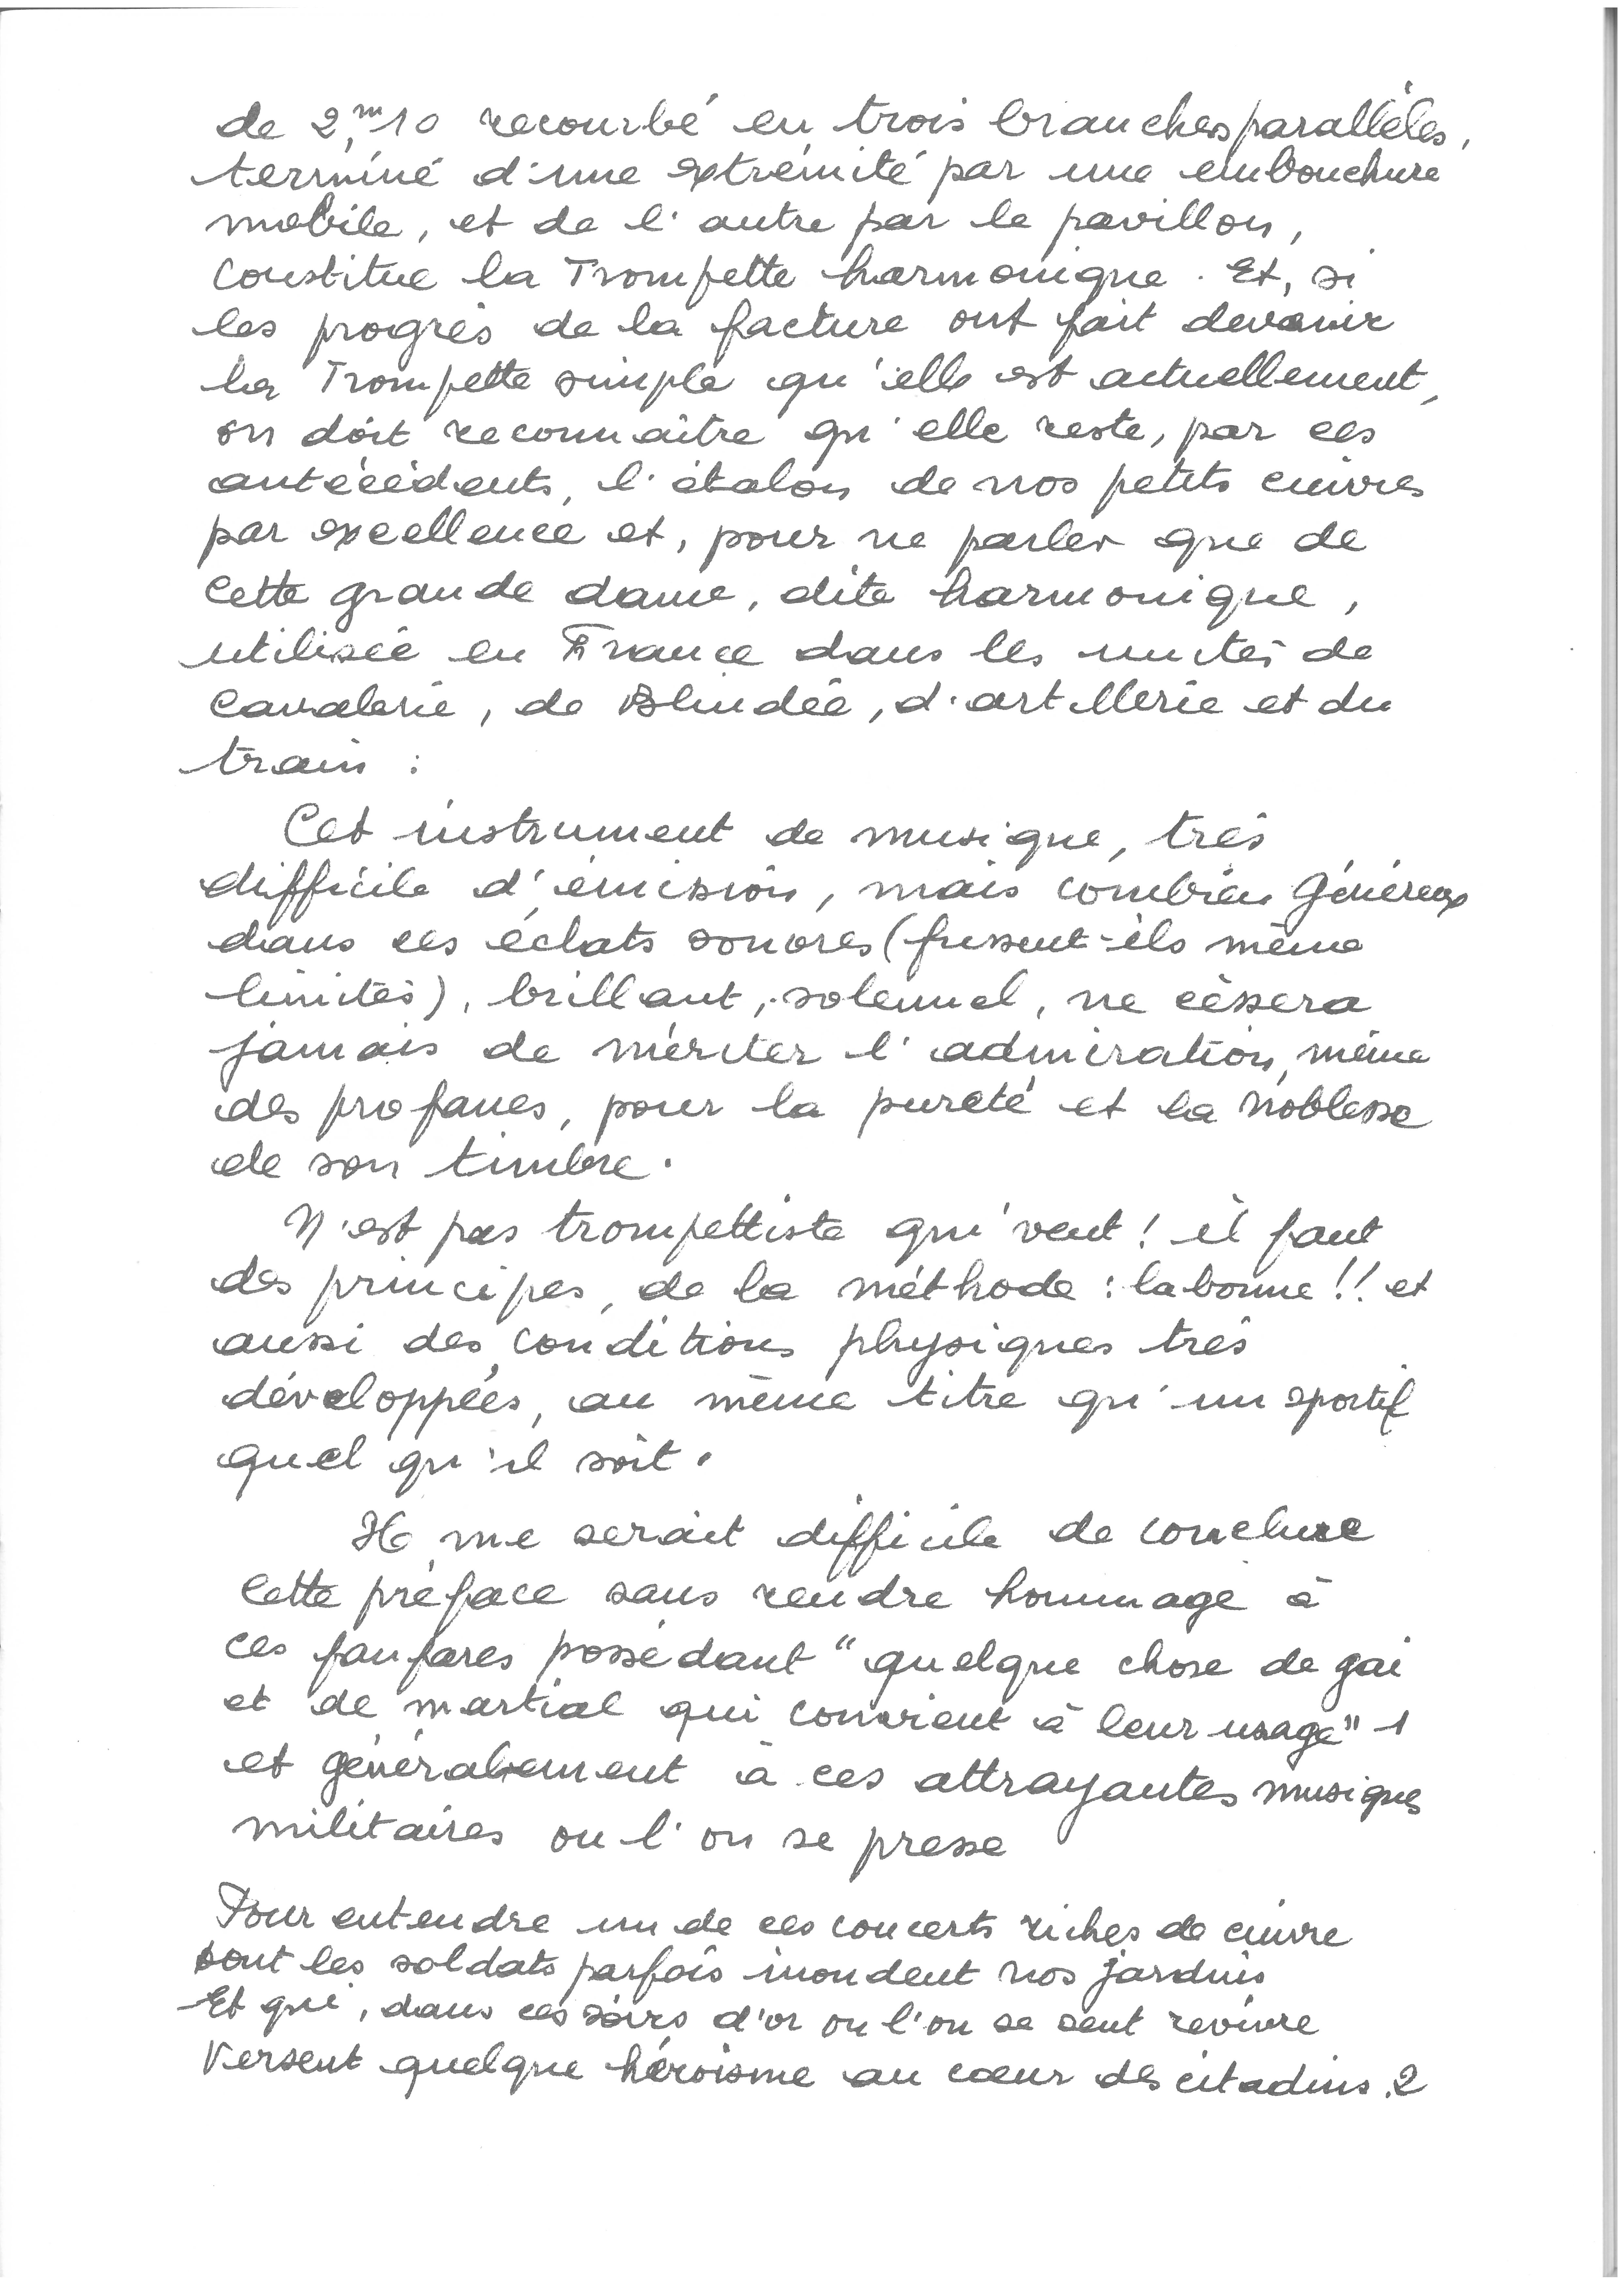 de 2,ᵐ10 recourbé en trois branches parallèles,
terminé d'une extrémité par une embouchure
mobile, et de l'autre par le pavillon,
constitue la Trompette harmonique. Et, si
les progrès de la facture ont fait devenir
la Trompette simple qu'elle est actuellement,
on doit reconnaître qu'elle reste, par ces
antécédents, l'étalon de nos petits cuivres
par excellence et, pour ne parler que de
cette grande dame, dite harmonique,
utilisée en France dans les unités de
Cavalerie, de Blindée, d'artillerie et du
train :
Cet instrument de musique, très
difficile d'émission, mais combien généreux
dans ces éclats sonores (fussent-ils même
limités), brillant, solennel, ne cèssera
jamais de mériter l'admiration, même
des profanes, pour la pureté et la noblesse
de son timbre.
N'est pas trompettiste qui veut ! il faut
des principes, de la méthode : la bonne !! et
aussi des conditions physiques très
développées, au même titre qu'un sportif
quel qu'il soit.
Il me serait difficile de conclure
cette préface sans rendre hommage à
ces fanfares possédant "quelque chose de gai
et de martial qui convient à leur usage" 1
et généralement à ces attrayantes musiques
militaires ou l'on se presse
Pour entendre un de ces concerts riches de cuivre
dont les soldats parfois inondent nos jardins
Et qui, dans ces soirs d'or ou l'on se sent revivre
Versent quelque héroïsme au cœur des citadins. 2